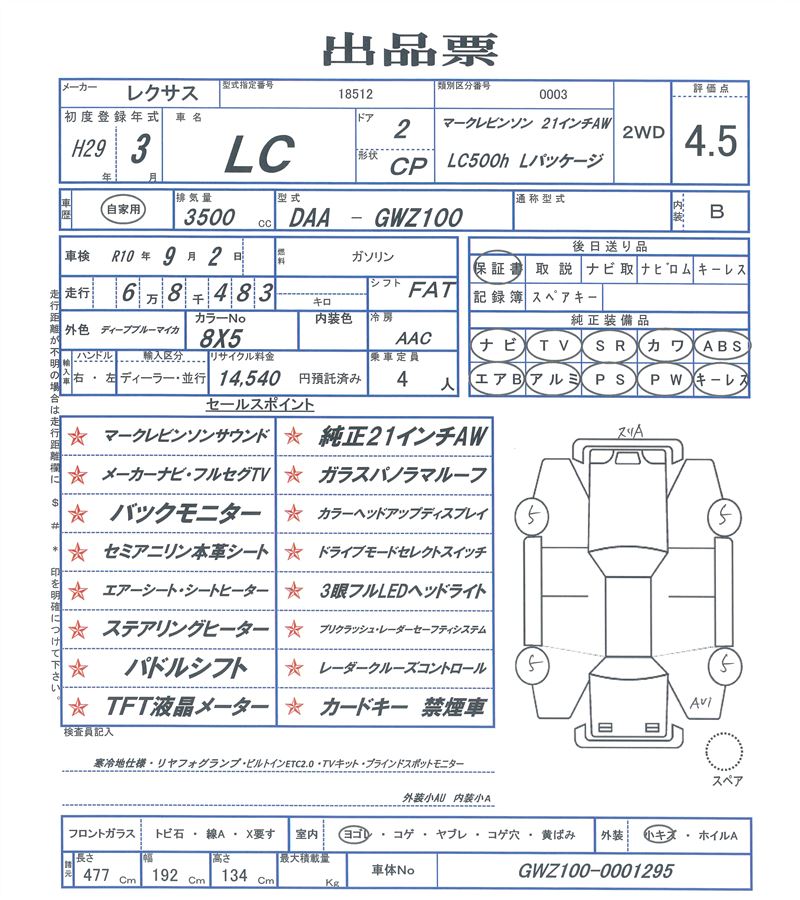 出品票
メーカー レクサス 型式指定番号 18512 類別区分番号 0003 評価点
初度登録年式 H29年 3月 車名 LC ドア 2 形状 CP マークレビンソン 21インチAW 2WD 4.5
LC500h Lパッケージ
車歴 自家用 排気量 3500 CC 型式 DAA - GWZ100 通称型式 内装 B
車検 R10年 9月 2日 燃料 ガソリン
走行 6万8千483 キロ シフト FAT
外色 ディープブルーマイカ カラーNo 8X5 内装色 冷房 AAC
輸入車 ハンドル 右・左 輸入区分 ディーラー・並行 リサイクル料金 14,540 円預託済み 乗車定員 4 人
後日送り品
保証書 取説 ナビ取 ナビロム キーレス
記録簿 スペアキー
純正装備品
ナビ TV SR カワ ABS
エアB アルミ PS PW キーレス
走行距離が不明の場合は走行距離欄に $ # * 印を明確につけて下さい。
セールスポイント
マークレビンソンサウンド 純正21インチAW
メーカーナビ・フルセグTV ガラスパノラマルーフ
バックモニター カラーヘッドアップディスプレイ
セミアニリン本革シート ドライブモードセレクトスイッチ
エアーシート・シートヒーター 3眼フルLEDヘッドライト
ステアリングヒーター プリクラッシュ・レーダーセーフティシステム
パドルシフト レーダークルーズコントロール
TFT液晶メーター カードキー 禁煙車
スリA
5 5
5 5
AU1
スペア
検査員記入
寒冷地仕様・リヤフォグランプ・ビルトインETC2.0・TVキット・ブラインドスポットモニター
外装小AU 内装小A
フロントガラス トビ石・線A・X要す 室内 ヨゴレ・コゲ・ヤブレ・コゲ穴・黄ばみ 外装 小キズ・ホイルA
諸元 長さ 477 Cm 幅 192 Cm 高さ 134 Cm 最大積載量 Kg 車体No GWZ100-0001295